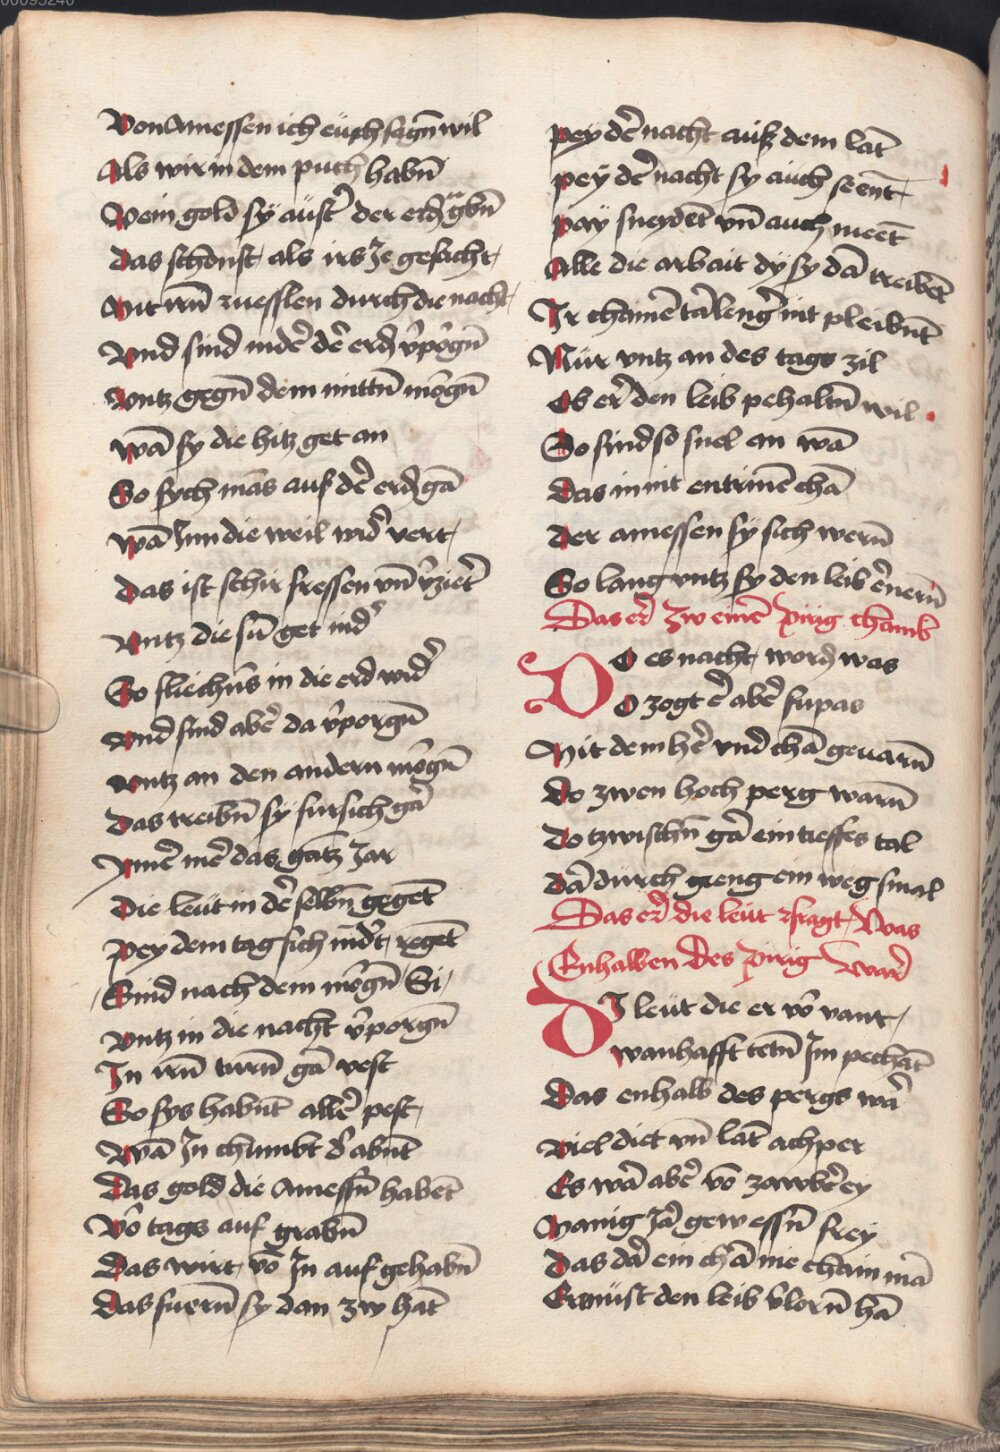 Von Amessen ich eüch sagn̄ wil
Als wir in dem puch habn̄
Rein gold sy aüs der erd grabn̄
Das schonst als irs Je gesacht
Mit irn̄ ruesslen durch die nacht
Vnd sind indˀ dˀ erd vˀporgn̄
Vntz gegn̄ dem mittn̄ morgn̄
Wā sy die hitz get an
So sych mās auf dˀ erd gā
Wā Jnn die weil widˀ vert
Das ist schir fressen vn̄ vˀziert
Vntz die sūn get nidˀ
So fliechn̄s in die erd widˀ
Vnd sind abˀ da vˀporgn̄
Vntz an den andern morgn̄
Das treibn̄ sy fursich gar
Ymˀ mˀ das gantz Jar
Die leüt in dˀ selbn̄ gegēt
Pey dem tag sich nidˀt regēt
Sind nach dem morgn̄ Si
Vntz in die nacht vˀporgn̄
In irn̄ turn̄ gar vest
So sys habnt allˀ pest
Wā Jn chumbt dˀ abnt
Das gold die Amessn̄ habēt
Vō tags auf grabn̄
Das wirt vō Jn auf gehabn̄
Das fuern̄ sy dan zw hāt
Pey dˀ nacht aüs dem lāt
Pey dˀ nacht sy aüch seent
Pay sneydēt vn̄ auch meēt
Alle die arbait dy sy dā treibēt
Ir chainˀ tar lengˀ nit pleibnt
Nür vntz an des tags zil
Ob er den leib pehaltn̄ wil
So sind so snel an wā
Das in nit entrinē chā
Der amessen sy sich wern̄
So lang vntz sy den leib ernern̄
Das er zw einē pirig chamb
DO es nacht word was
DO zogt er abˀ fürpas
Mit dem her vnd chā geuarn̄
Do zwen hoch perg warn̄
Do tzwischn̄ gar ein tieffes tal
Dā durch gieng ein weg smal
Das er die leüt fragt Was
Enhalben des pirig war
DJ leüt die er vor vant
Wanhafft tetn̄ Jm pechāt
Das enhalb des pergs wār
Viel diet vn̄ lāt achper
Es war abˀ vō zawbˀey
Manig Jar gewessn̄ frey
Das dar ein chā nie chain mā
Er müst den leib vˀlorn̄ hā